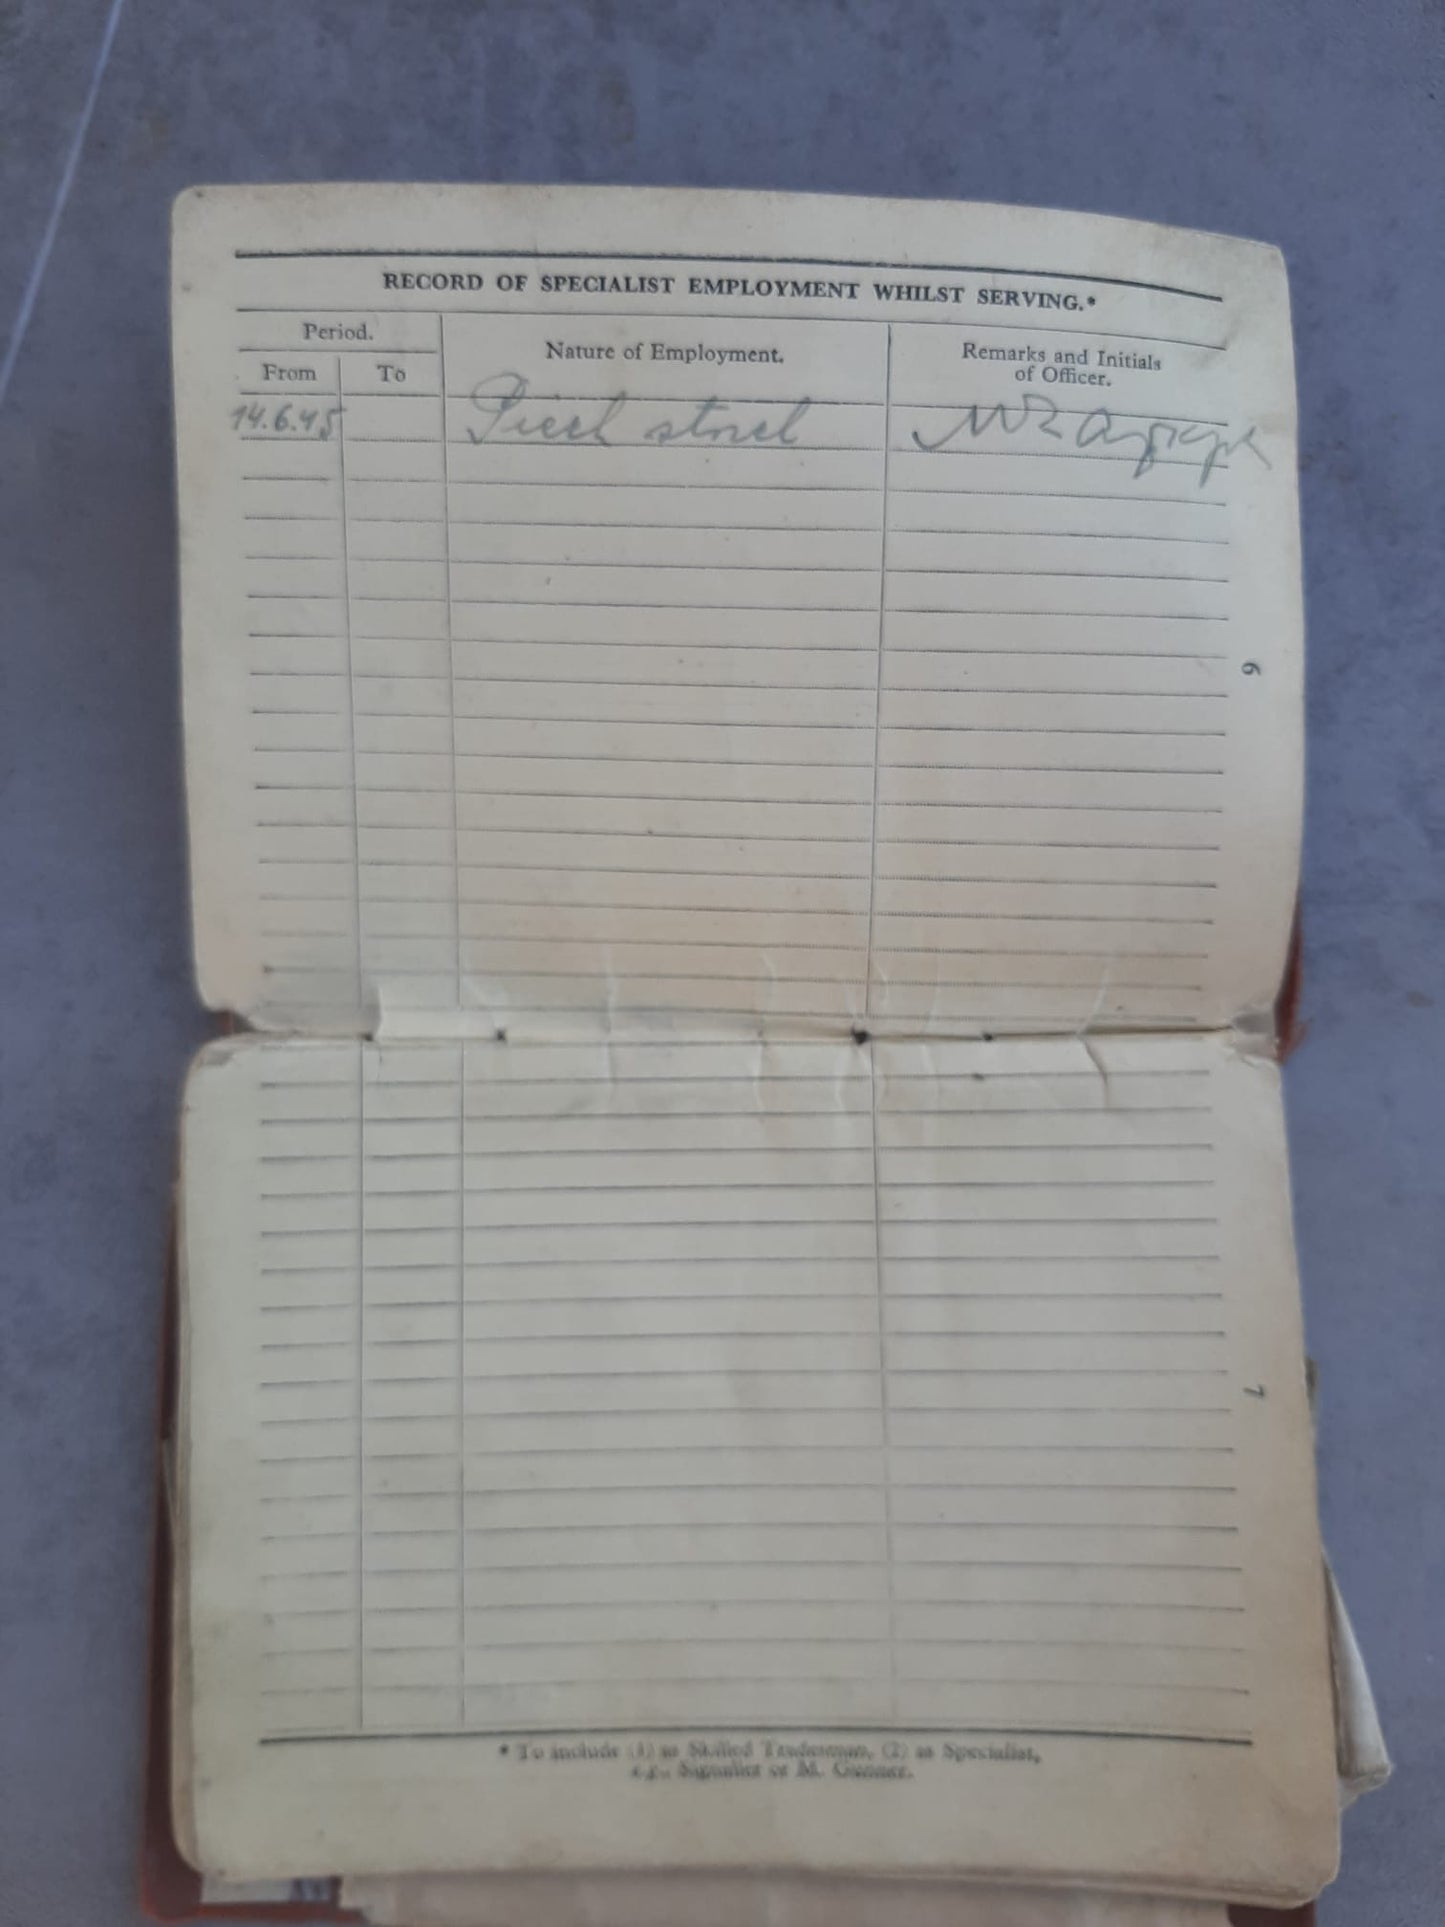 RECORD OF SPECIALIST EMPLOYMENT WHILST SERVING.*
Period.
Nature of Employment.
Remarks and Initials
of Officer.
From To
14.6.45
6
7
* To include (1) as Skilled Tradesman, (2) as Specialist,
e.g., Signaller or M. Gunner.